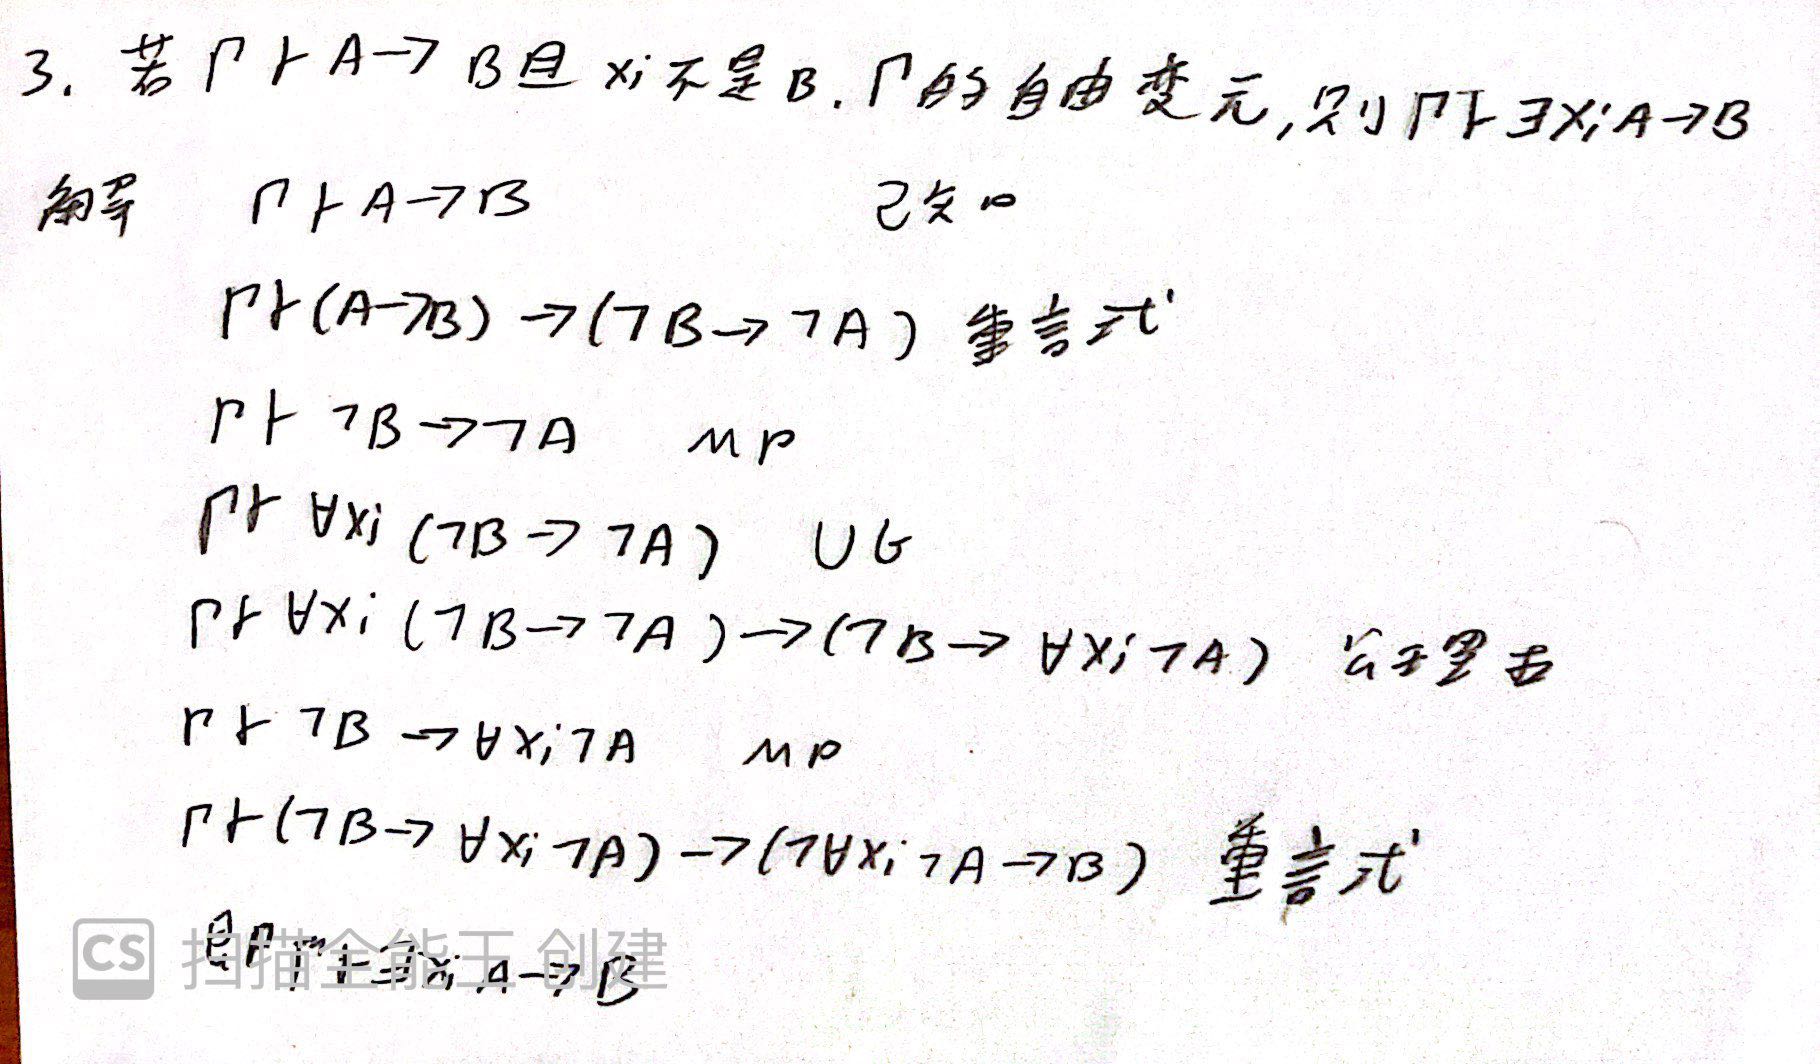 3. 若 Γ ⊢ A→B 且 xi 不是 B, Γ 的自由变元, 则 Γ ⊢ ∃xiA→B
解 Γ ⊢ A→B 已知
Γ ⊢ (A→B) → (¬B → ¬A) 重言式
Γ ⊢ ¬B → ¬A MP
Γ ⊢ ∀xi (¬B → ¬A) UG
Γ ⊢ ∀xi (¬B → ¬A) → (¬B → ∀xi¬A) 公理5
Γ ⊢ ¬B → ∀xi¬A MP
Γ ⊢ (¬B → ∀xi¬A) → (¬∀xi¬A → B) 重言式
即 Γ ⊢ ∃xi A → B
CS 扫描全能王 创建